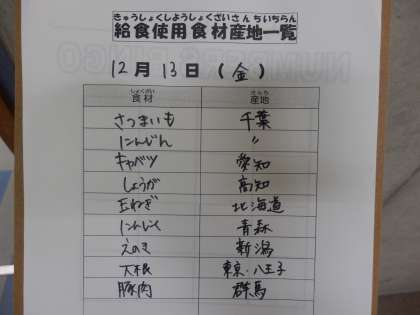 きゅうしょくしようしょくざいさんちいちらん
給食使用食材産地一覧
12月13日(金)
しょくざい さんち
食材 産地
さつまいも 千葉
にんじん 〃
キャベツ 愛知
しょうが 高知
玉ねぎ 北海道
にんにく 青森
えのき 新潟
大根 東京・八王子
豚肉 群馬